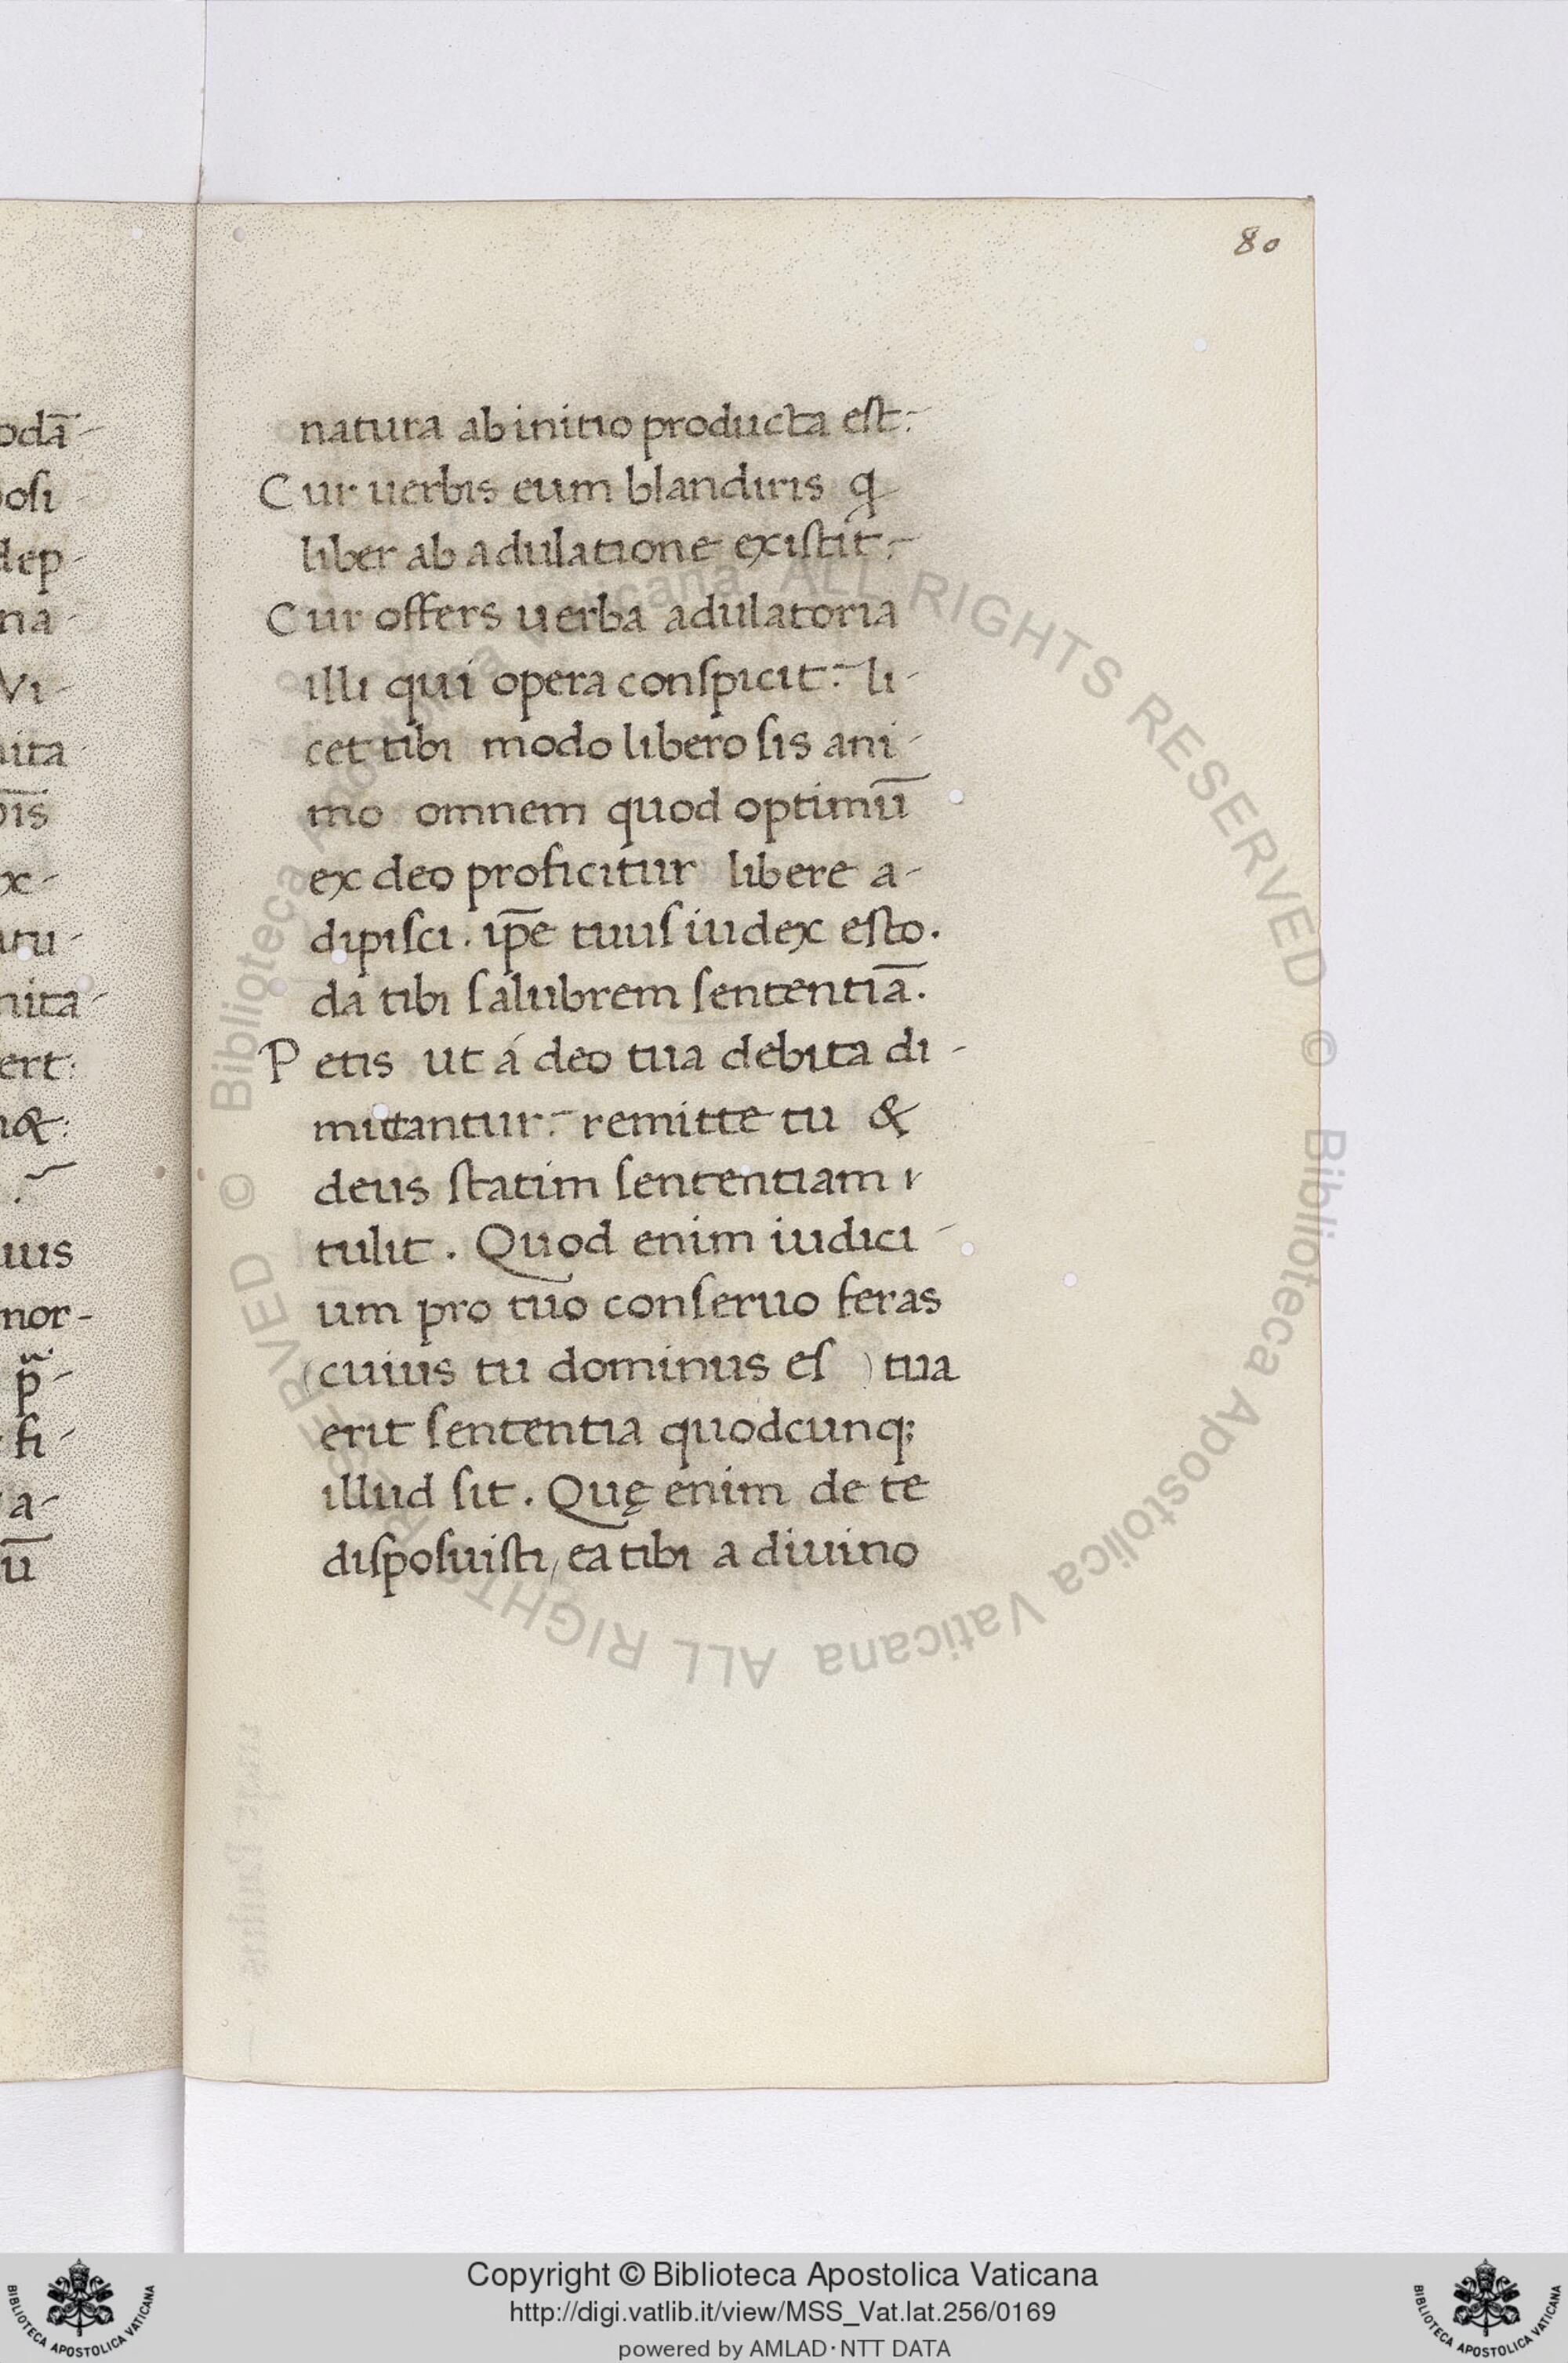 80
odā-
osi-
dep-
na-
Vi-
uita
p̄is
ex-
utu-
nita-
ert:
uius
nor-
fi-
a-
ū
natura ab initio producta est:-
Cur uerbis eum blandiris q
liber ab adulatione existit:-
Cur offers uerba adulatoria
illi qui opera conspicit:- li-
cet tibi modo libero sis ani-
mo omnem quod optimū
ex deo proficitur libere a-
dipisci. ip̄e tuus iudex esto.
da tibi salubrem sententiā.
Petis ut á deo tua debita di-
mittantur:- remitte tu &
deus statim sententiam
tulit. Quod enim iudici-
um pro tuo conseruo feras
(cuius tu dominus es ) tua
erit sententia quodcunq;
illud sit. Quę enim de te
disposuisti, ea tibi a diuino
© Biblioteca Apostolica Vaticana ALL RIGHTS RESERVED
© Biblioteca Apostolica Vaticana ALL RIGHTS RESERVED
Copyright © Biblioteca Apostolica Vaticana
http://digi.vatlib.it/view/MSS_Vat.lat.256/0169
powered by AMLAD · NTT DATA
BIBLIOTECA APOSTOLICA VATICANA
BIBLIOTECA APOSTOLICA VATICANA